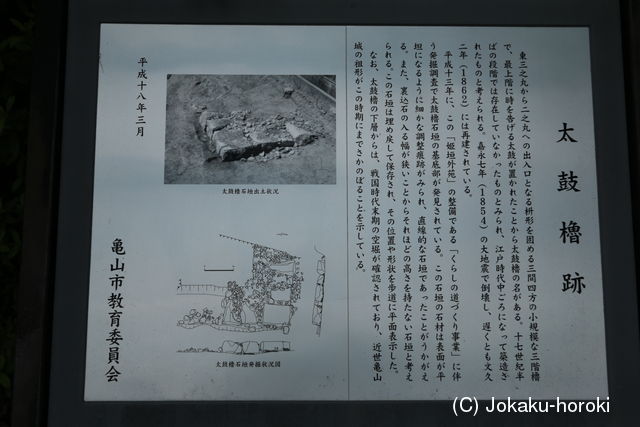 太鼓櫓跡
東三之丸から二之丸への出入口となる枡形を固める三間四方の小規模な三階櫓
で、最上階に時を告げる太鼓が置かれたことから太鼓櫓の名がある。十七世紀半
ばの段階では存在していなかったものとみられ、江戸時代中ごろになって築造さ
れたものと考えられる。嘉永七年(1854)の大地震で倒壊し、遅くとも文久
二年(1862)には再建されている。
平成十三年に、この「姫垣外苑」の整備である「くらしの道づくり事業」に伴
う発掘調査で太鼓櫓石垣の基底部が発見されている。この石垣の石材は表面が平
垣になるように細かな調整痕跡がみられ、直線的な石垣であったことがうかがえ
る。また、裏込石の入る幅が狭いことからそれほどの高さを持たない石垣と考え
られる。この石垣は埋め戻して保存され、その位置や形状を歩道に平面表示した。
なお、太鼓櫓の下層からは、戦国時代末期の空堀が確認されており、近世亀山
城の祖形がこの時期にまでさかのぼることを示している。
太鼓櫓石垣出土状況
太鼓櫓石垣発掘状況図
平成十八年三月
亀山市教育委員会
(C) Jokaku-horoki